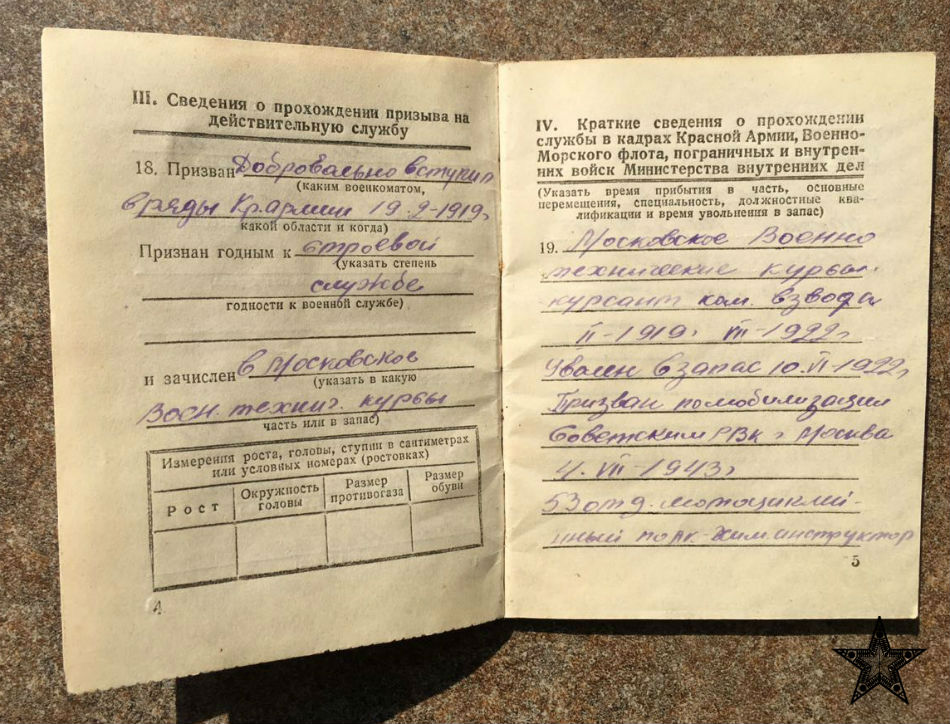 III. Сведения о прохождении призыва на
действительную службу
18. Призван Добровольно вступил
(каким военкоматом,
в ряды Кр. армии 19.2-1919г
какой области и когда)
Признан годным к строевой
(указать степень
службе
годности к военной службе)
и зачислен в Московское
(указать в какую
Воен. технич. курсы
часть или в запас)
Измерения роста, головы, ступни в сантиметрах
или условных номерах (ростовках)
Рост Окружность головы Размер противогаза Размер обуви
4
IV. Краткие сведения о прохождении
службы в кадрах Красной Армии, Военно-
Морского флота, пограничных и внутрен-
них войск Министерства внутренних дел
(Указать время прибытия в часть, основные
перемещения, специальность, должностные ква-
лификации и время увольнения в запас)
19. Московское Военно
технические курсы.
курсант ком. взвода
II-1919г VII-1922г
Уволен в запас 10.VI-1922г
Призван по мобилизации
Советским РВк г Москва
4. VII-1943г
53 отд. мотоциклет-
ный полк-Химинструктор
5